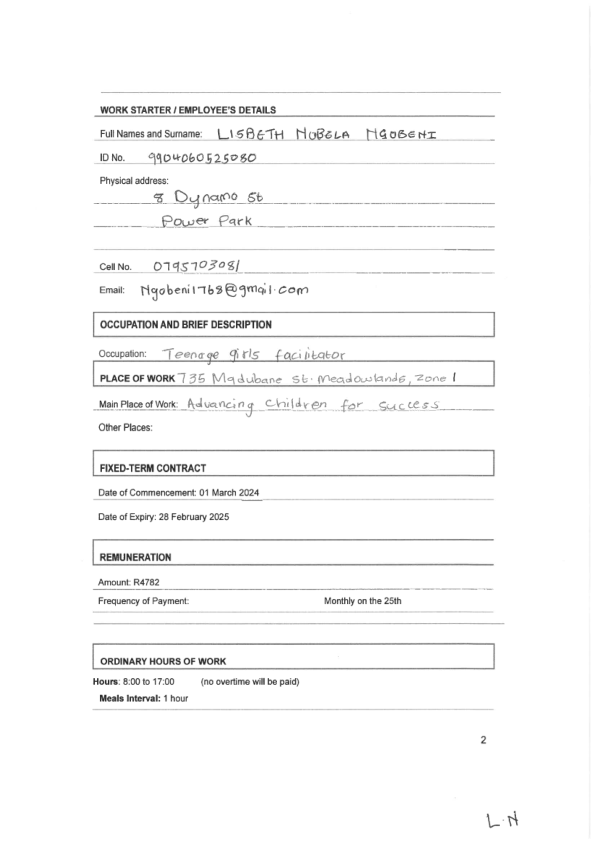 WORK STARTER / EMPLOYEE'S DETAILS
Full Names and Surname: LISBETH NOBELA NGOBENI
ID No. 9904060525080
Physical address:
8 Dynamo St
Power Park
Cell No. 0795703081
Email: Ngobeni1768@gmail.com
OCCUPATION AND BRIEF DESCRIPTION
Occupation: Teenage girls facilitator
PLACE OF WORK 735 Madubane St. Meadowlands, Zone 1
Main Place of Work: Advancing Children for success
Other Places:
FIXED-TERM CONTRACT
Date of Commencement: 01 March 2024
Date of Expiry: 28 February 2025
REMUNERATION
Amount: R4782
Frequency of Payment: Monthly on the 25th
ORDINARY HOURS OF WORK
Hours: 8:00 to 17:00 (no overtime will be paid)
Meals Interval: 1 hour
2
L.N